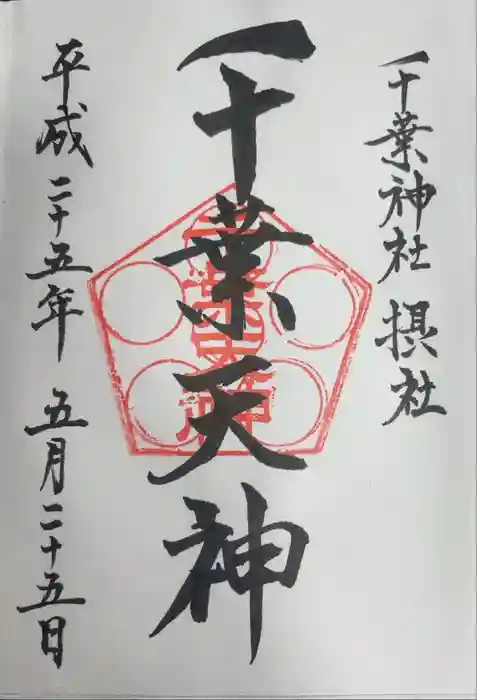 千葉神社 摂社
千葉天神
平成二十五年 五月二十五日